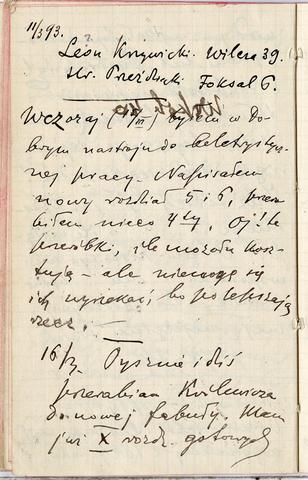 11/3 93.
Leon Krzywicki. Wilcza 39.
Hr. Foksal 6.
Wczoraj był em w do-
brym nastroju do beletrystycz-
nej pracy. Napisałem
nowy rozdział 5 i 6, prze
biłem nieco 4 ty, Oj! te
przeróbki, ile mozołu kosz-
tują – ale niemogę się
ich wyrzekać, bo polepszają
rzecz. –
Pysznie idiś
przerabiam Królewicza
do nowej fabuły. Mam
już X rozdz. gotowych